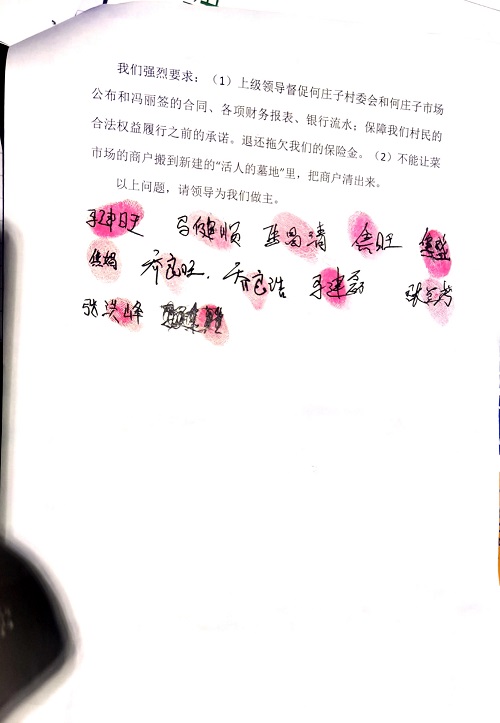 我们强烈要求：（1）上级领导督促何庄子村委会和何庄子市场
公布和冯丽签的合同、各项财务报表、银行流水；保障我们村民的
合法权益履行之前的承诺。退还拖欠我们的保险金。（2）不能让菜
市场的商户搬到新建的“活人的墓地”里，把商户清出来。
以上问题，请领导为我们做主。
马健顺
乔良旺 乔良浩
张洪峰